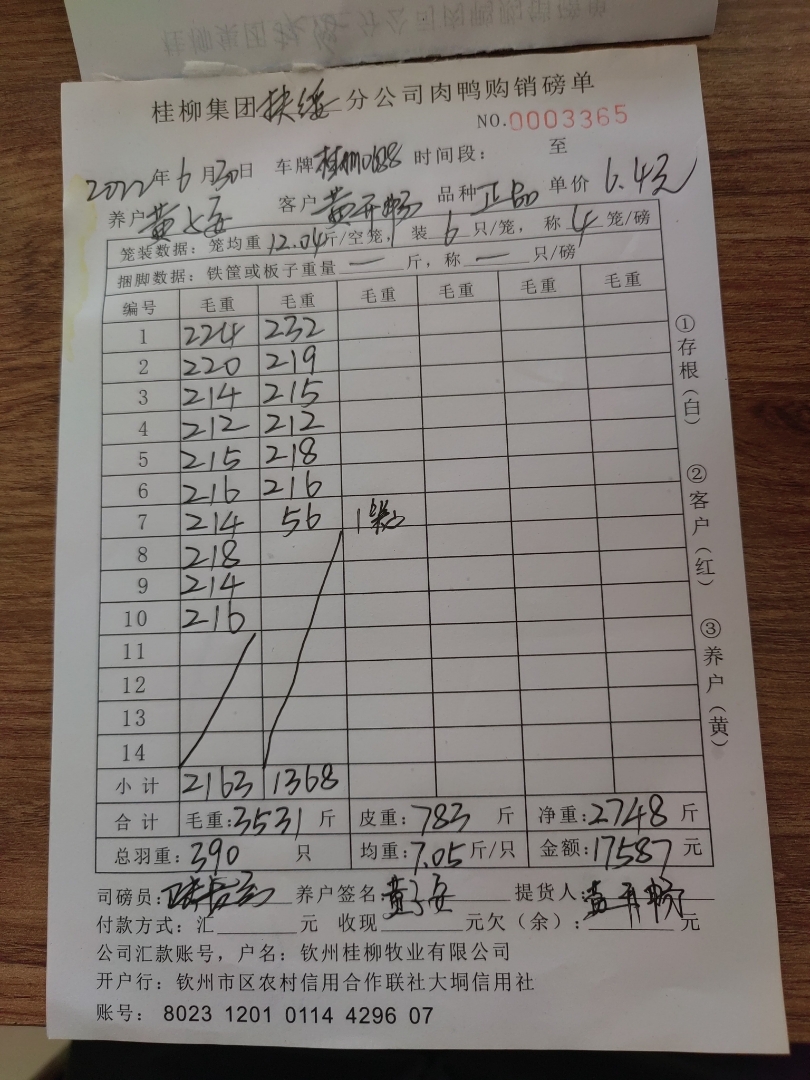 桂柳集团扶绥分公司肉鸭购销磅单
NO.0003365
2022年6月30日 车牌 时间段： 至
养户 黄 客户 黄开畅 品种 正品 单价 6.4元
笼装数据：笼均重 12.04斤/空笼， 装 6 只/笼， 称 4 笼/磅
捆脚数据：铁筐或板子重量 — 斤，称 — 只/磅
编号 毛重 毛重 毛重 毛重 毛重 毛重
1 224 232
2 220 219
3 214 215
4 212 212
5 215 218
6 216 216
7 214 56 1
8 218
9 214
10 216
11
12
13
14
小计 2163 1368
合计 毛重：3531 斤 皮重：783 斤 净重：2748 斤
总羽重：390 只 均重：7.05斤/只 金额：17587 元
司磅员： 养户签名 黄 提货人：黄开畅
付款方式：汇 元 收现 元欠（余）： 元
公司汇款账号，户名：钦州桂柳牧业有限公司
开户行：钦州市区农村信用合作联社大垌信用社
账号： 8023 1201 0114 4296 07
①存根（白）
②客户（红）
③养户（黄）